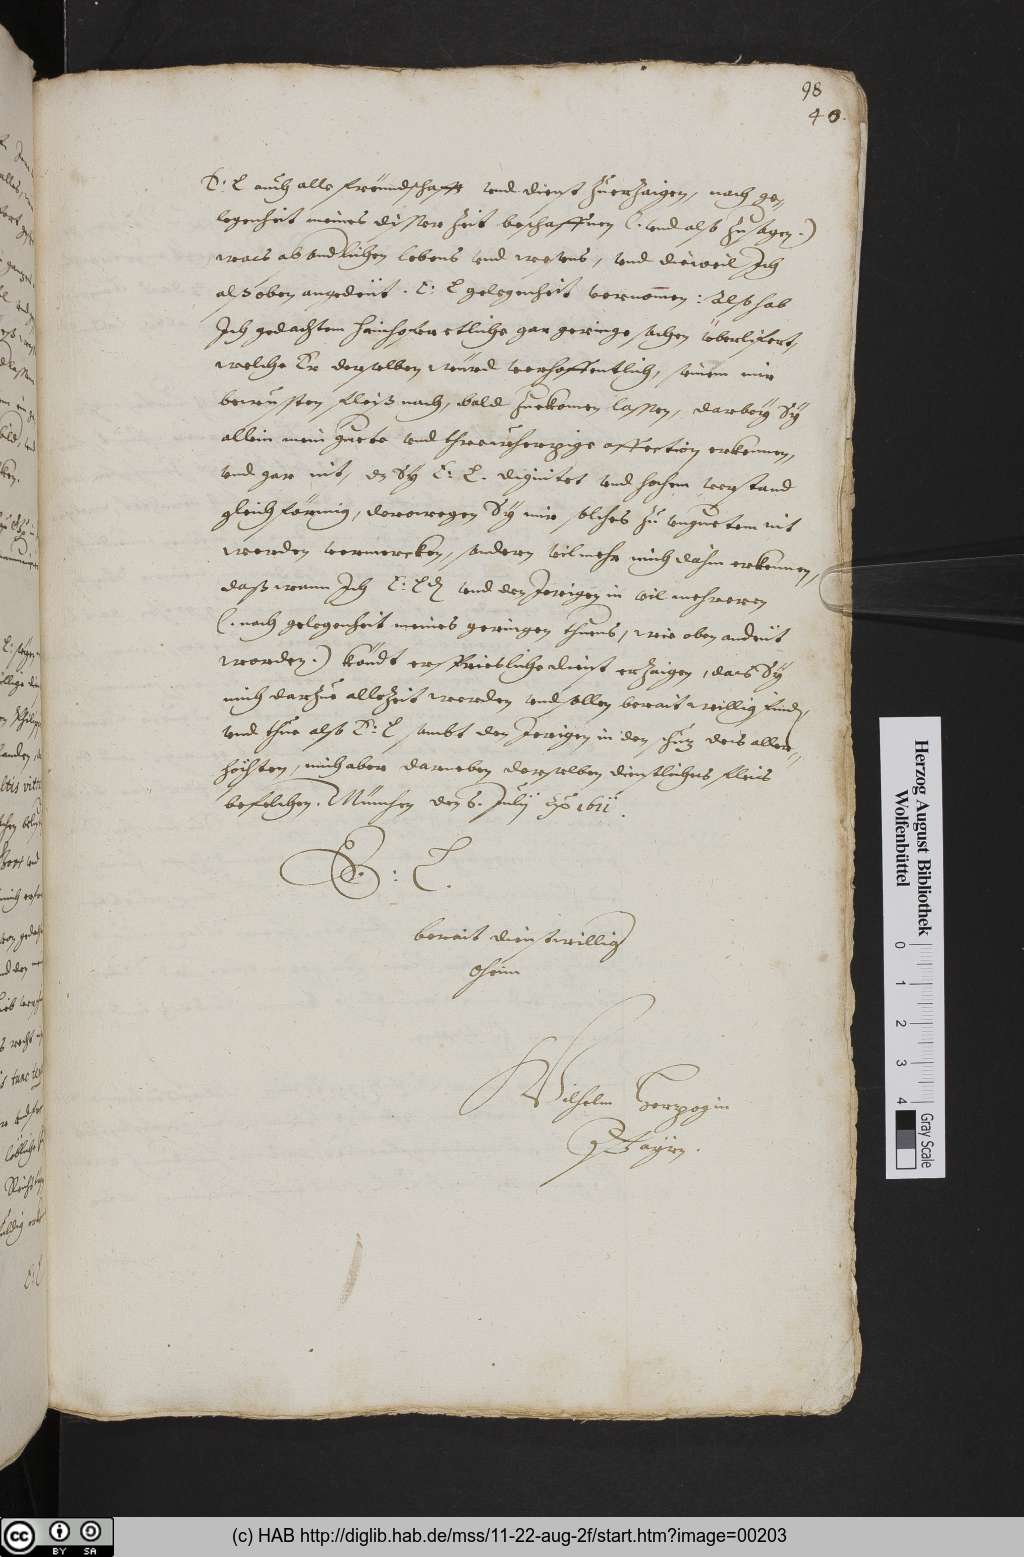 98
40.
E: L auch alle freündschafft vnd dienst zuerzaigen, nach ge,
legenheit meines disser Zeit beschaffnen (. vnd also zu sagen .)
was absonderlichen lebens vnd wesens, vnd dieweil Ich
alß oben angedeüt. E: L gelegenheit vernom̄en: Also hab
Ich gedachtem Hainhofer etliche gar geringe sachen vberlifert,
welche Er derselben würd verhoffentlich, seinem mir
bewüsten fleiß nach, bald zuekomen lassen, darbey Sy
allein mein guete vnd threwherzige affection erkennen,
vnd gar nit, dz Sy E: L. dignitet vnd hochem verstand
gleichförmig, derowegen Sy mir solches zu vnguetem nit
werden vermercken, sondern vil mehr mich dahin erkennen,
daß wann Ich E: Ld vnd den Ierigen in vil mehrerem
(. nach gelegenheit meines geringen thuens, wie oben andeüt
worden .) köndt ersprießliche dienst erzaigen, das Sy
mich darzue allezeit werden vnd sollen berait willig finden
vnd thue also E: L sambt den Ierigen in den schuz des aller,,
höchsten, mich aber darneben derselben dienstliches fleis
befelchen. München den 6. Julij Aō 1611.
E: L.
berait dienstwillig
Oheim
Wilhelm Herzog in
Bayrn.
Herzog August Bibliothek
Wolfenbüttel
0 1 2 3 4
Gray Scale
CC BY SA
(c) HAB http://diglib.hab.de/mss/11-22-aug-2f/start.htm?image=00203